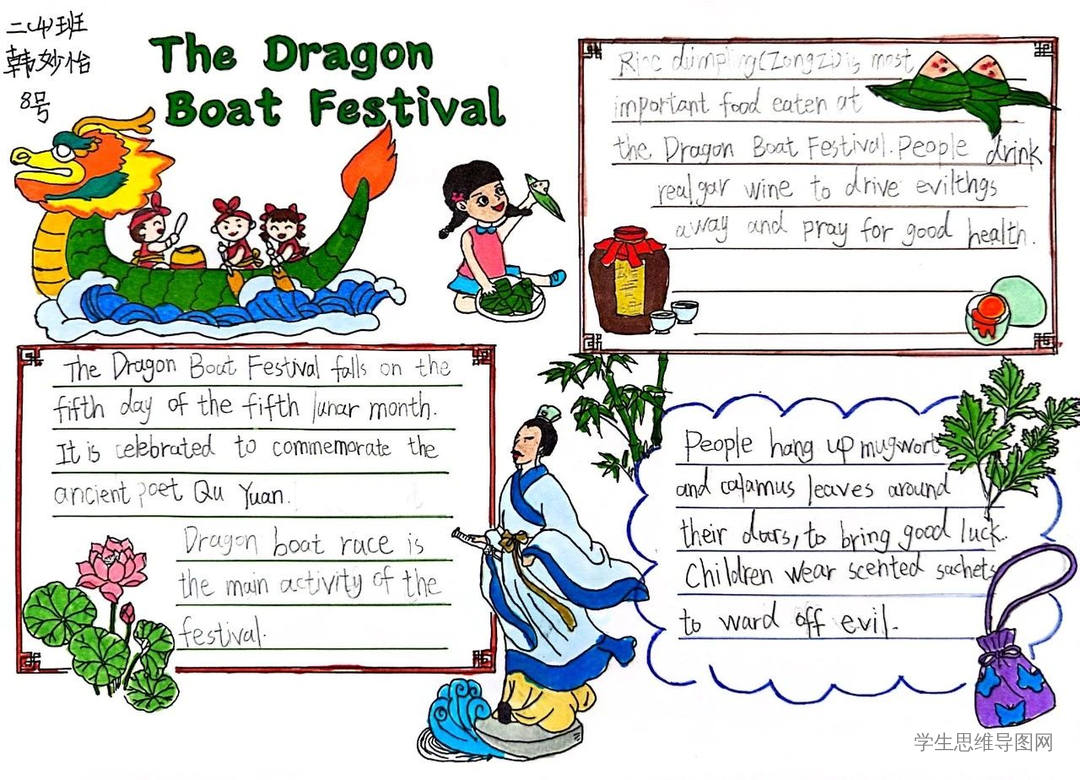 二(4)班
韩妙怡
8号
The Dragon
Boat Festival
Rice dumpling(Zongzi)is most
important food eaten at
the Dragon Boat Festival. People drink
realgar wine to drive evilthgs
away and pray for good health.
The Dragon Boat Festival falls on the
fifth day of the fifth lunar month.
It is celebrated to commemorate the
ancient poet Qu Yuan.
Dragon boat race is
the main activity of the
festival.
People hang up mugwort
and calamus leaves around
their doors, to bring good luck.
Children wear scented sachets
to ward off evil.
学生思维导图网